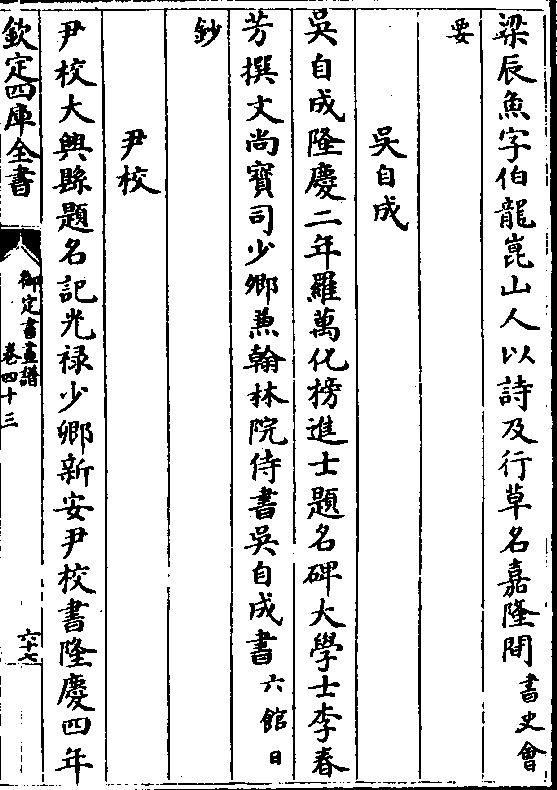 梁辰魚字伯龍崑山人以詩及行草名嘉隆間書史會
要
吳自成
吳自成隆慶二年羅萬化榜進士題名碑大學士李春
芳撰文尚寶司少卿兼翰林院侍書吳自成書六館日
鈔
尹校
尹校大興縣題名記光禄少卿新安尹校書隆慶四年
欽定四庫全書
御定書畫譜
卷四十三
六十七